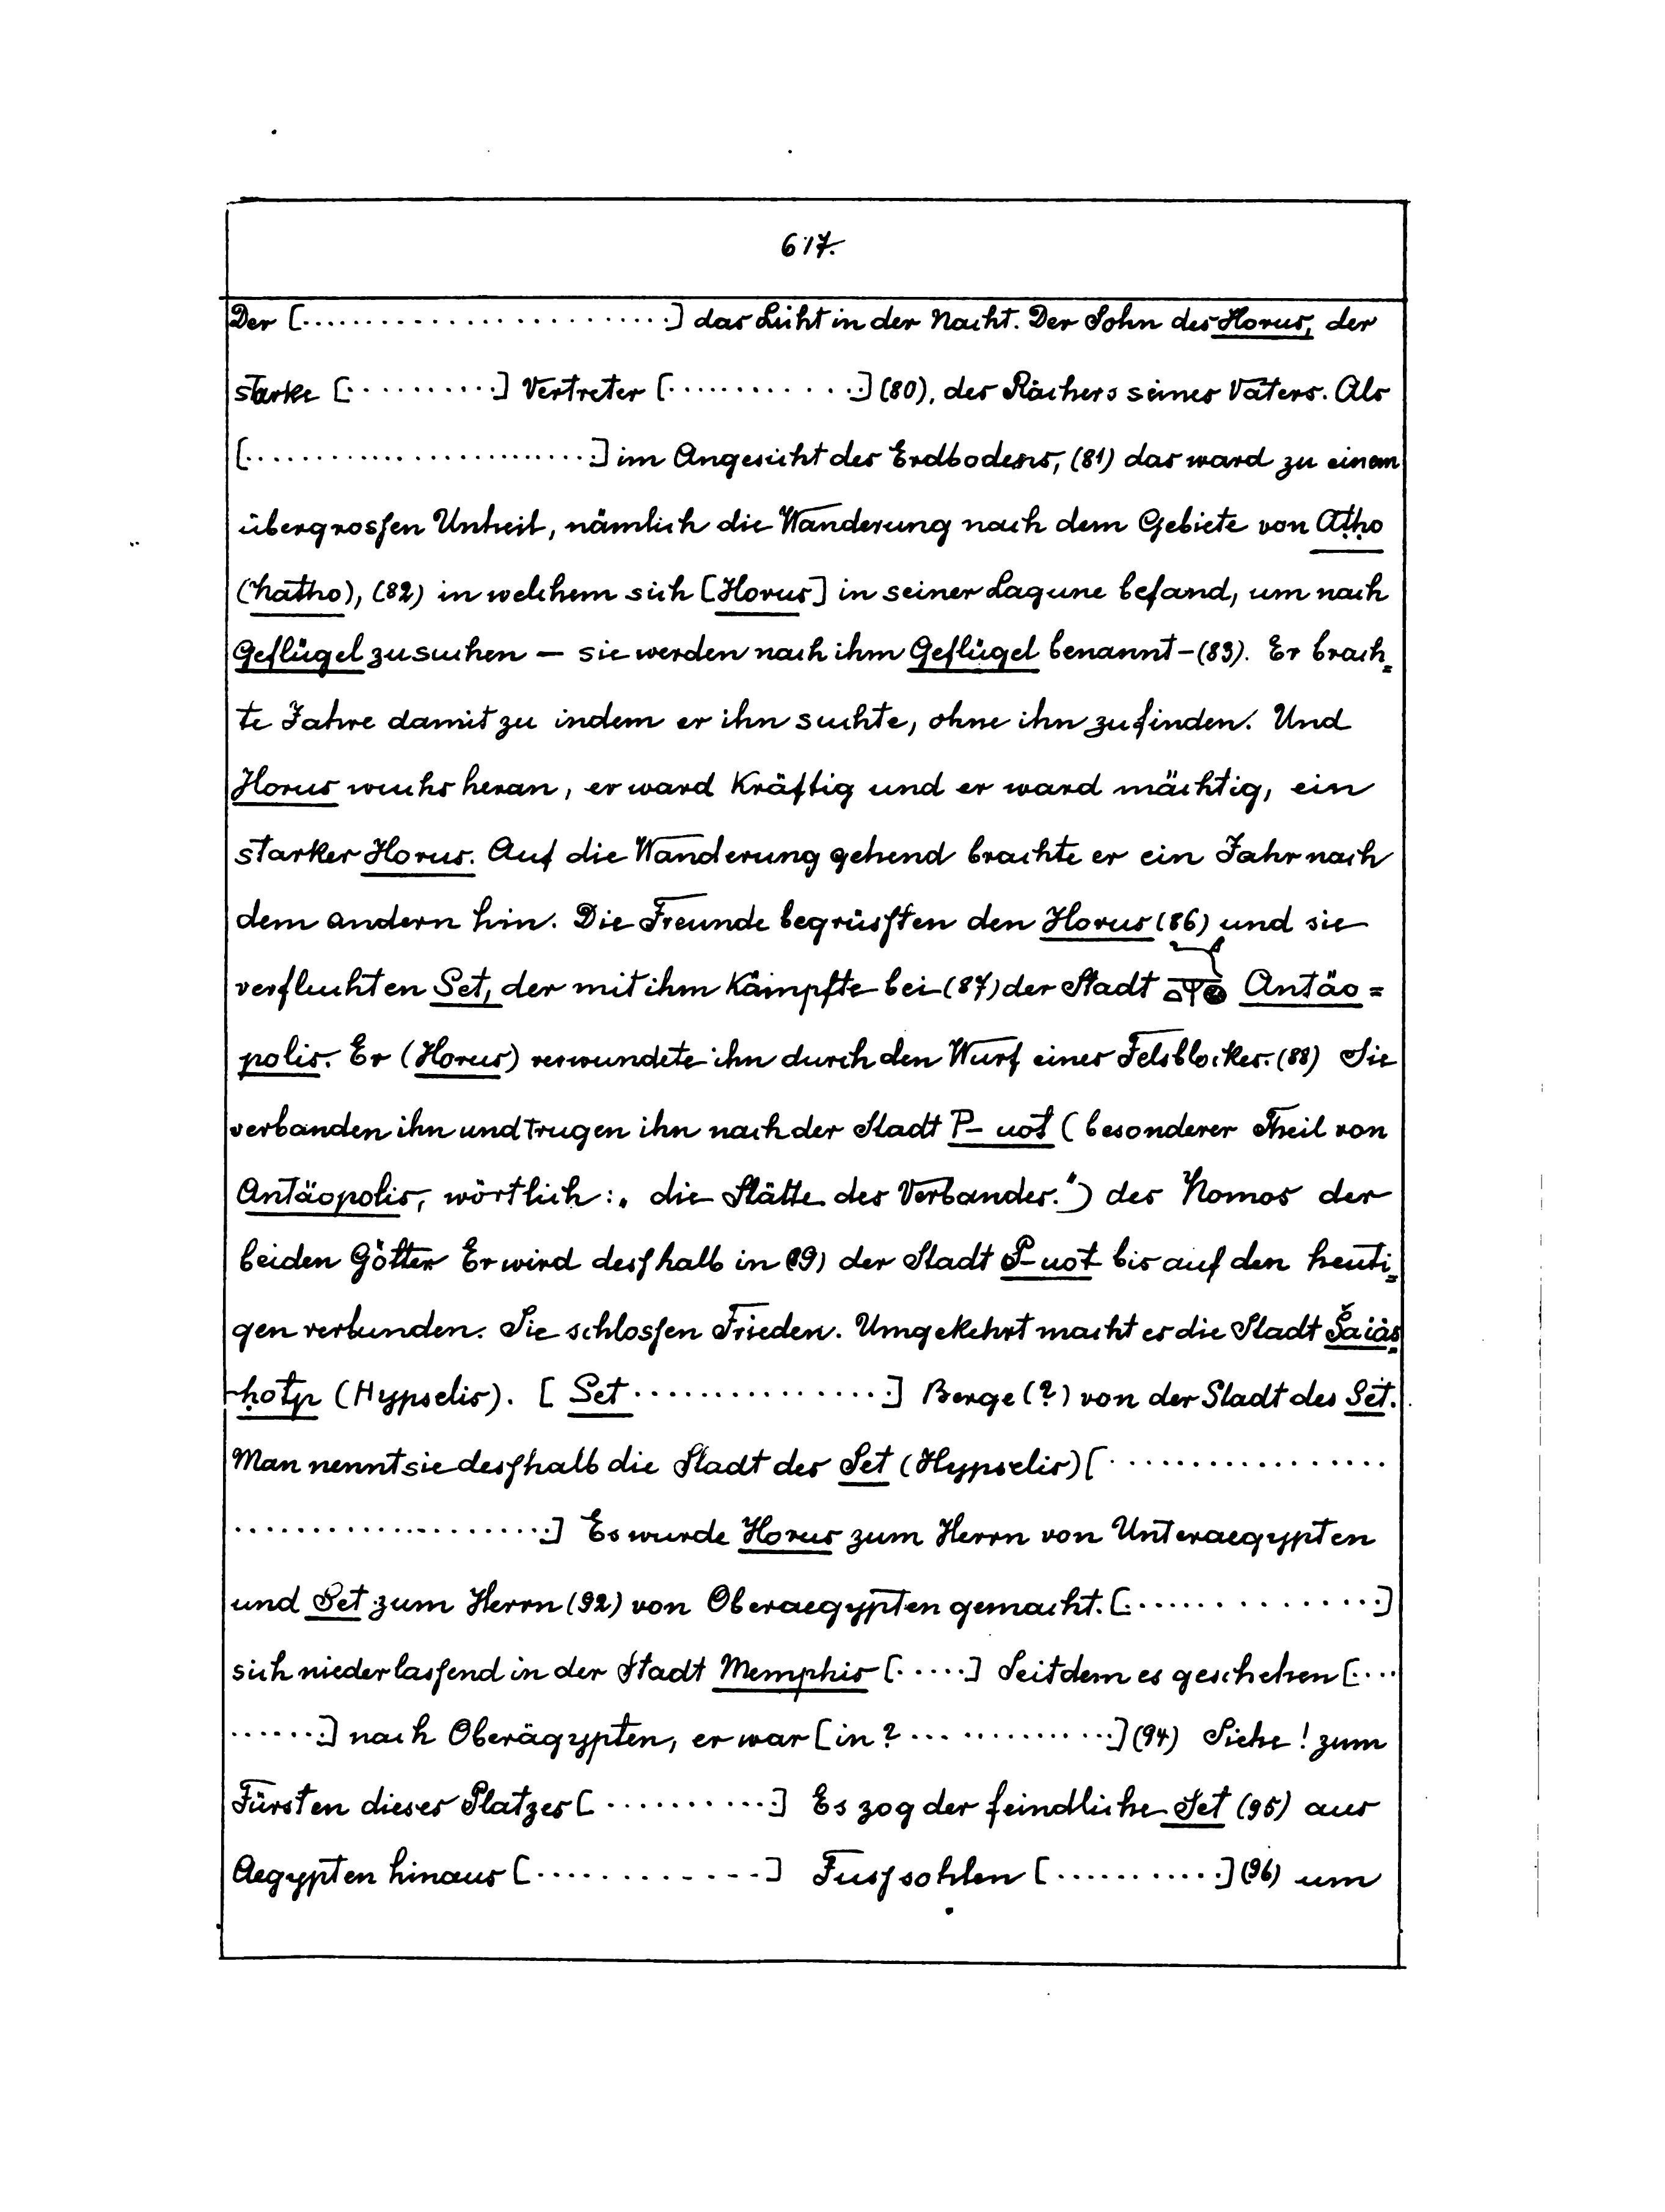 617.
Der [........................] das Licht in der Nacht. Der Sohn des Horus, der
starke [..........] Vertreter [.............] (80), des Rächers seines Vaters. Als
[.......................] im Angesicht des Erdbodens, (81) das ward zu einem
übergrossen Unheil, nämlich die Wanderung nach dem Gebiete von Aṭḥo
(Natho), (82) in welchem sich [Horus] in seiner Lagune befand, um nach
Geflügel zu suchen — sie werden nach ihm Geflügel benannt — (83). Er brach=
te Jahre damit zu indem er ihn suchte, ohne ihn zu finden. Und
Horus wuchs heran, er ward kräftig und er ward mächtig, ein
starker Horus. Auf die Wanderung gehend brachte er ein Jahr nach
dem andern hin. Die Freunde begrüssten den Horus (86) und sie
verfluchten Set, der mit ihm kämpfte bei (87) der Stadt Antäo=
polis. Er (Horus) verwundete ihn durch den Wurf eines Felsblockes. (88) Sie
verbanden ihn und trugen ihn nach der Stadt P-uot (besonderer Theil von
Antäopolis, wörtlich: „die Stätte des Verbandes.") des Nomos der
beiden Götter Er wird desshalb in (89) der Stadt P-uot bis auf den heuti=
gen verbunden. Sie schlossen Frieden. Umgekehrt macht es die Stadt Šaiàs
-ḥotp (Hypselis). [Set ...............] Berge (?) von der Stadt des Set.
Man nennt sie desshalb die Stadt des Set (Hypselis) [.................
.....................] Es wurde Horus zum Herrn von Unteraegypten
und Set zum Herrn (92) von Oberaegypten gemacht. [...............]
sich niederlassend in der Stadt Memphis [.....] Seitdem es geschehen [....
......] nach Oberägypten, er war [in? .............] (94) Siehe! zum
Fürsten dieses Platzes [...........] Es zog der feindliche Set (95) aus
Aegypten hinaus [..............] Fusssohlen [...........] (96) um